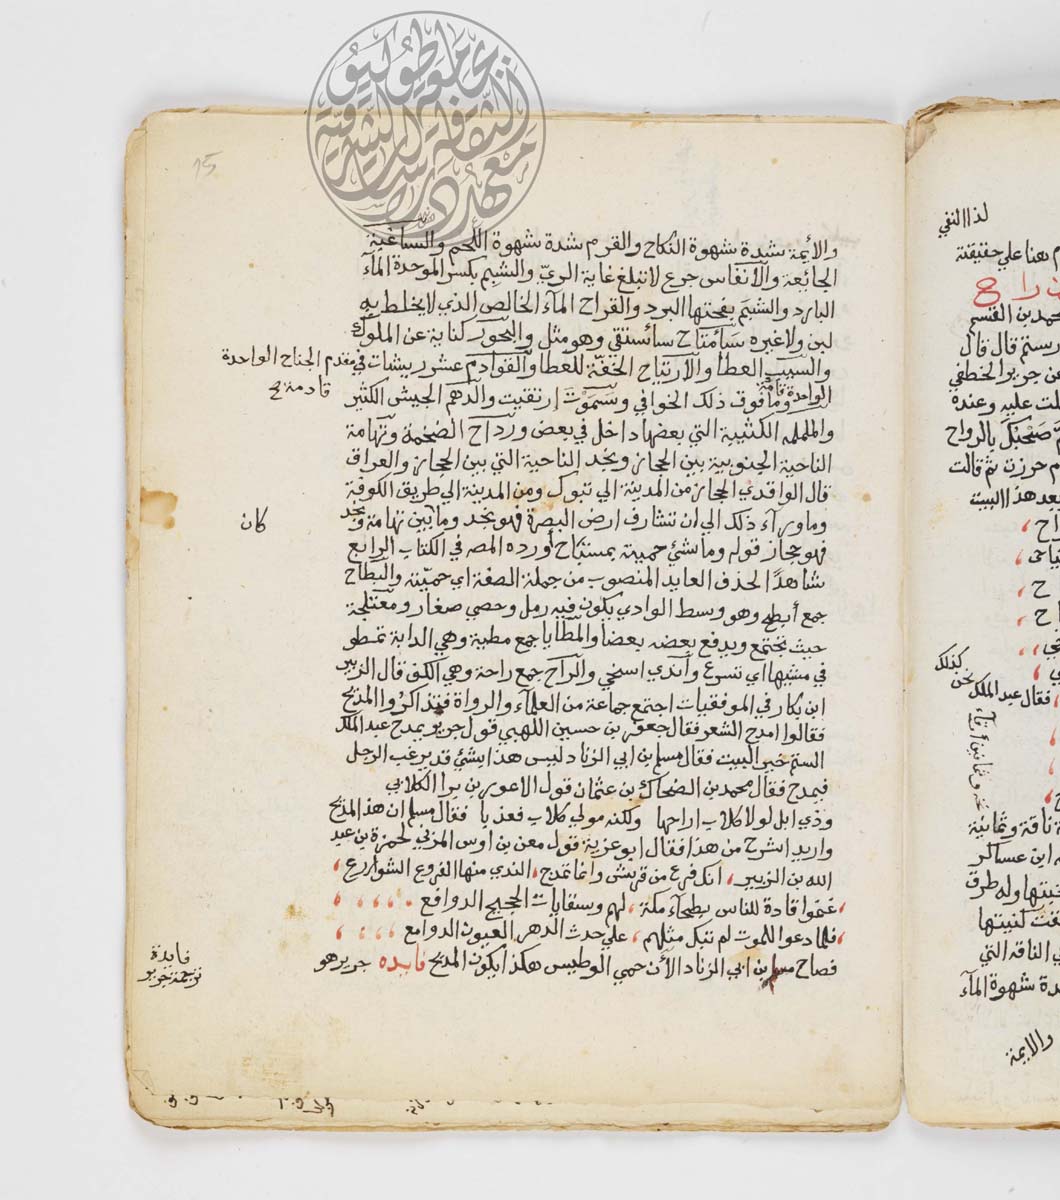 والأيمة شدة شهوة النكاح والقرم شدة شهوة اللحم والساغبة
الجائعة والأنفاس جرع لا تبلغ غاية الري والشبم بكسر الموحدة الماء
البارد والشبم بفتحتها البرد والقراح الماء الخالص الذي لا يخلط به
لبن ولا غيره سأمتاح سأستقي وهو مثل والبحور كناية عن الملوك
والسيب العطا والارتياح الخفة للعطا والقوادم عشر ريشات في مقدم الجناح الواحدة
قادمة
وما فوق ذلك الخوافي وسموت ارتقيت والدهم الجيش الكثير
والململه الكتيبة التي بعضها داخل في بعض ورداح الضخمة وتهامة
الناحية الجنوبية بين الحجاز ونجد الناحية التي بين الحجاز والعراق
قال الواقدي الحجاز من المدينة الى تبوك ومن المدينة الى طريق الكوفة
وما وراء ذلك الى ان تشارف ارض البصرة فهو نجد وما بين تهامة ونجد
كان
فهو حجاز قوله وما شئ حميت بمستباح أورده المص في الكتاب الرابع
شاهدا لحذف العايد المنصوب من جملة الصفة اي حميته والبطاح
جمع أبطح وهو وسط الوادي يكون فيه رمل وحصى صغار ومعتلجة
حيث تجتمع ويدفع بعضه بعضا والمطايا جمع مطية وهي الدابة تمطو
في مشيها اي تسرع وأندي اسخي والراح جمع راحة وهي الكف قال الزبير
ابن بكار في الموفقيات اجتمع جماعة من العلماء والرواة فتذاكروا المديح
فقالوا امدح الشعر فقال جعفر بن حسين اللهبي قول جرير يمدح عبد الملك
الستم خير البيت فقال مسلم بن ابي الزناد ليس هذا بشئ قد يرغب الرجل
فيمدح فقال محمد بن الضحاك بن عثمان قول الاعور بن برا الكلابي
وذي ابل لولا كلاب اراحها ولكنه مولي كلاب فعذيا فقال مسلم ان هذا المديح
واريد اشرح من هذا فقال ابو عزية قول معن بن اوس المزني لحمزة بن عبد
الله بن الزبير، انك فرع من قريش وانما تمدح، الندي منها الفروع الشوارع،
، غموا قادة للناس بطحاء مكة، لهم وسقايات الحجيج الدوافع
، فلما دعوا للموت لم تبك مثلهم، علي حدث الدهر العيون الدوامع
فصاح مسلم بن ابي الزناد الأن حمي الوطيس هكذا يكون المديح فايده جرير هو
فايدة
ترجمة جرير
لذا النفي
م هنا علي حقيقته
حمد بن القسم
رستم قال قال
عن جرير الخطفي
لت عليه وعنده
صحبك بالرواح
م حرزت ثم قالت
بعد هذا البيت
كذلك
فقال عبد الملك
ة ناقة وثمانية
ه ابن عساكر
ي الناقة التي
دة شهوة الماء
والايمة